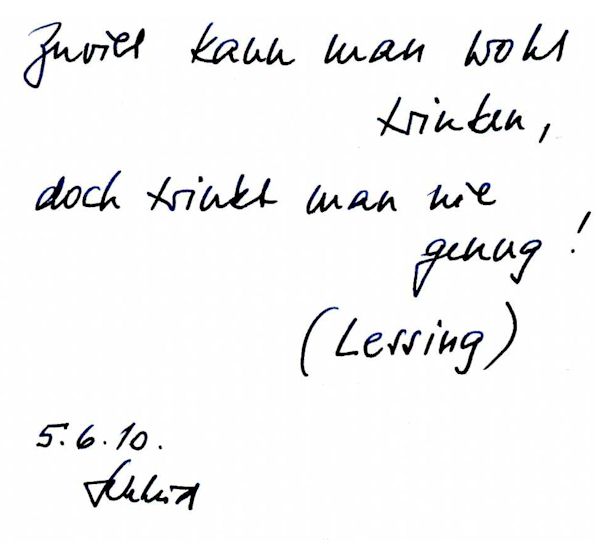 Zuviel kann man wohl
trinken,
doch trinkt man nie
genug!
(Lessing)
5.6.10.